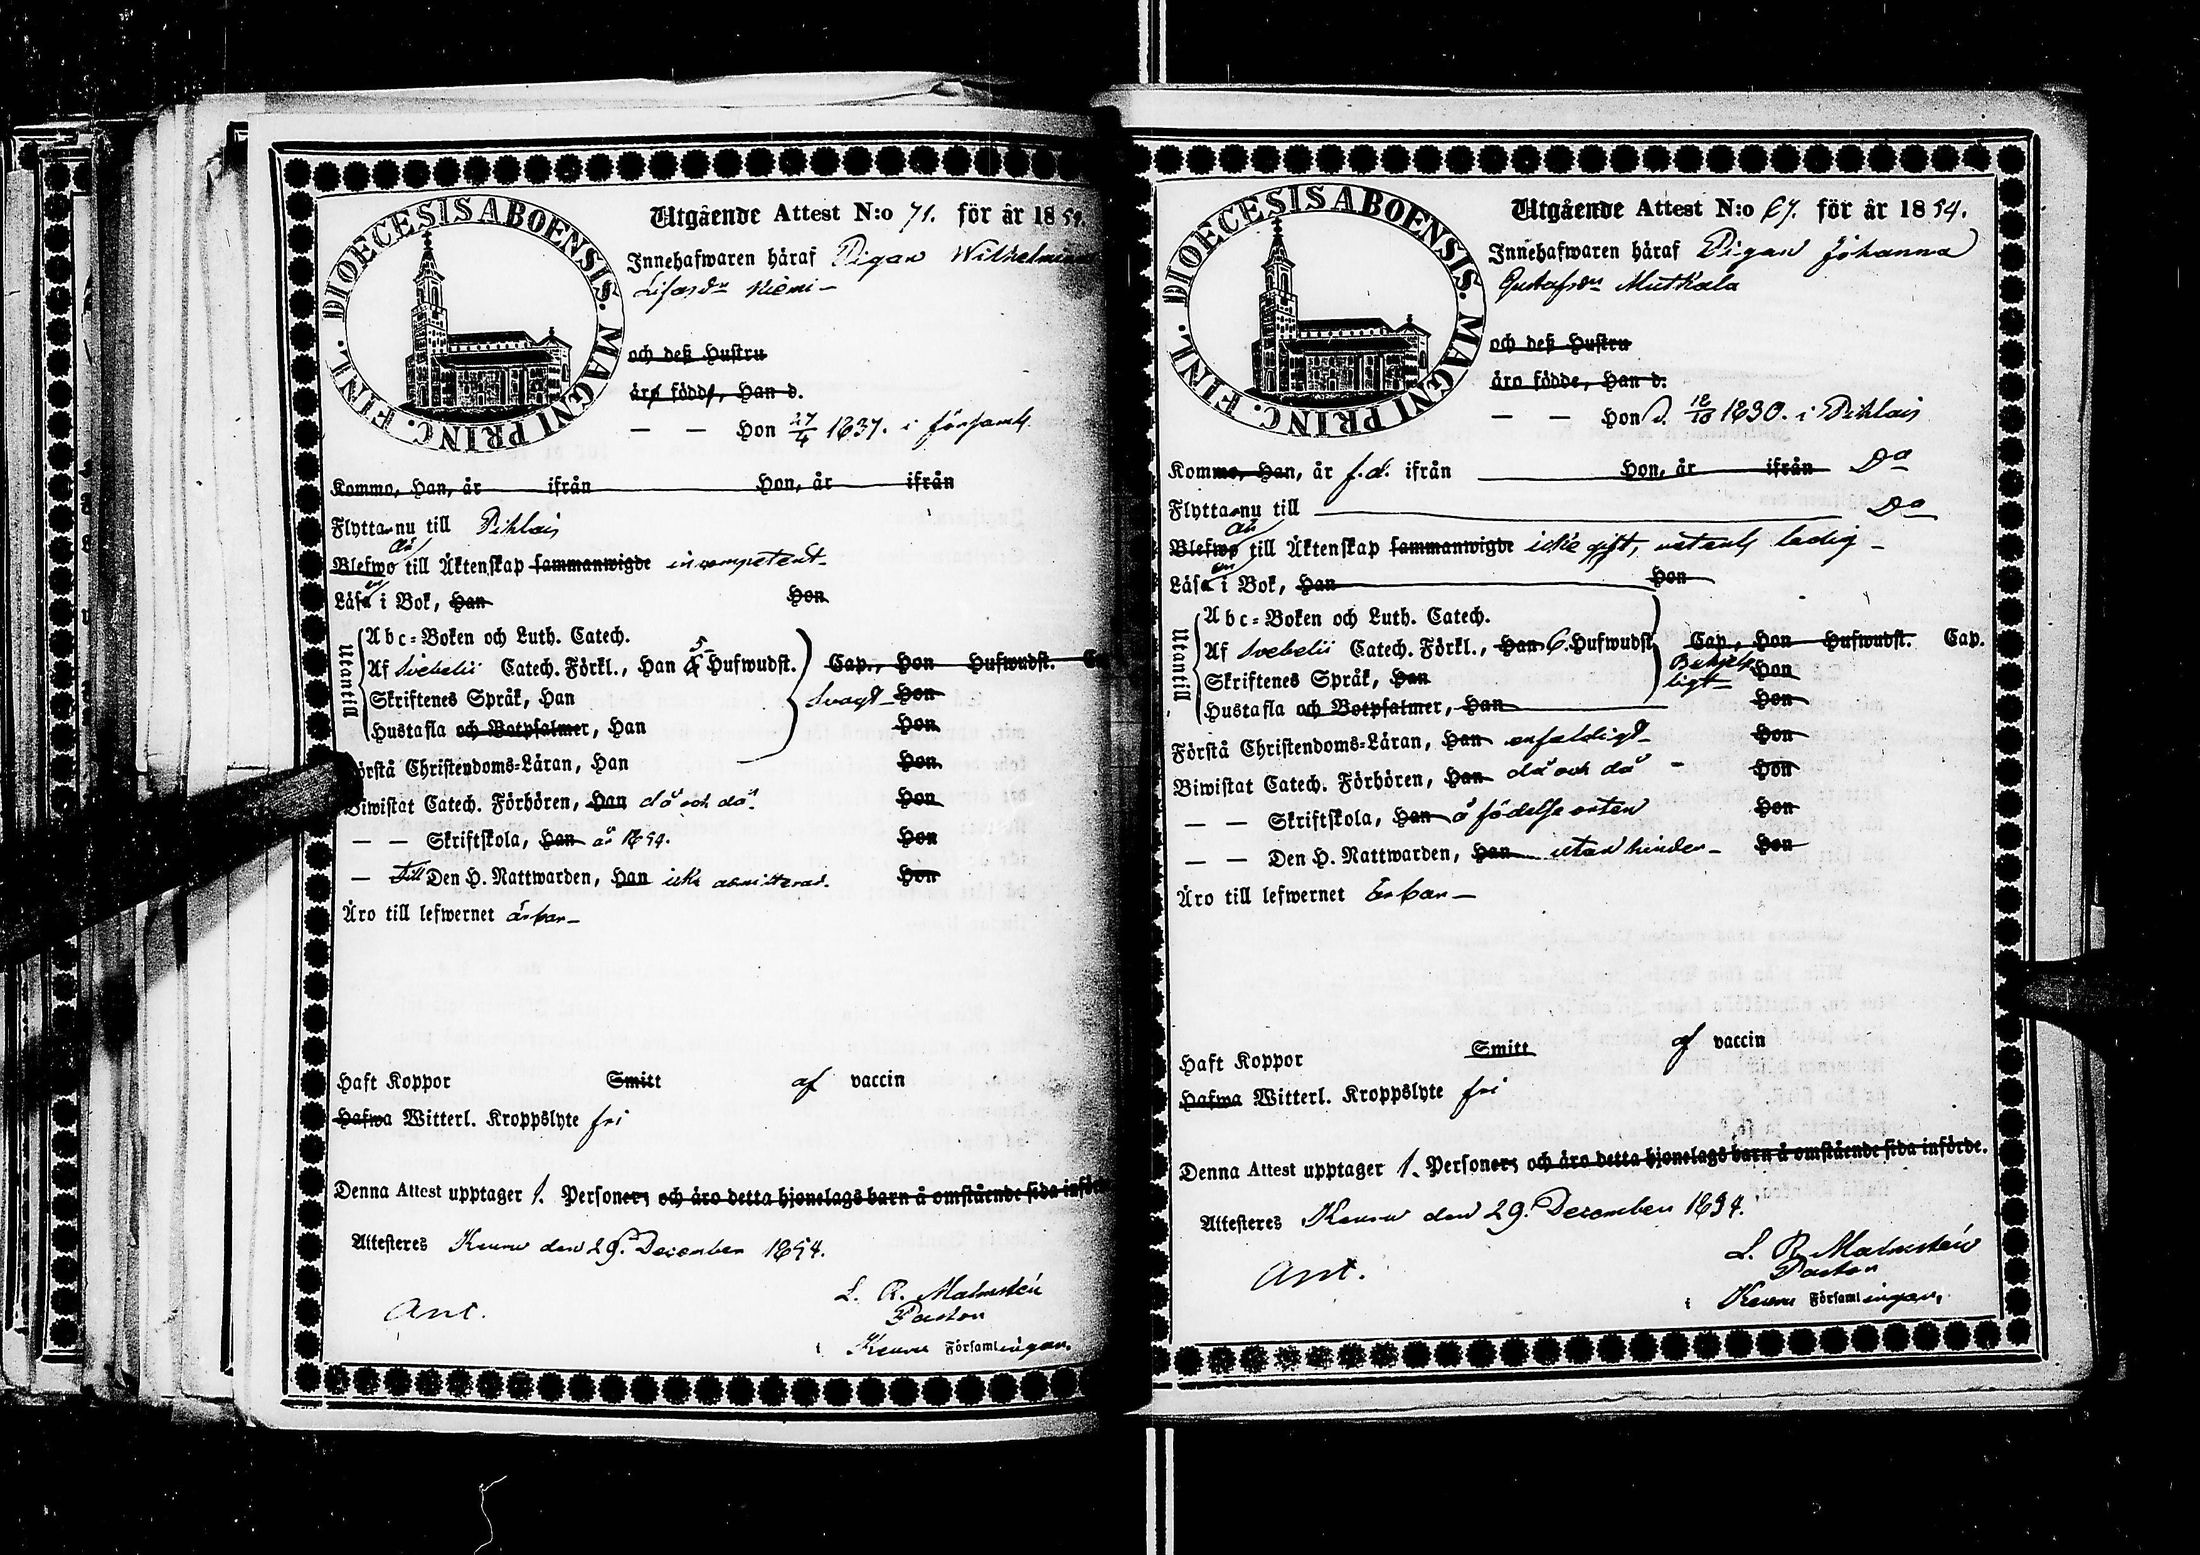 DIOECESIS ABOENSIS. MAGNI PRINC. FINL.
Utgående Attest N:o 71. för år 1854.
Innehafwaren häraf Pigan Wilhelmina
Niemi –
och deß Hustru
äro födde, Han d.
— — Hon 27/4 1837. i församl.
Komma, Han, år ifrån Hon, år ifrån
Flytta nu till Pihlais
Blefwo till Äktenskap sammanwigde incompetent –
Läsa i Bok, Han Hon
Utantill
Abc-Boken och Luth. Catech.
Af Svebelii Catech. Förkl., Han 5 Hufwudst. Cap., Hon Hufwudst.
Skriftenes Språk, Han svagt – Hon
Hustafla och Botpsalmer, Han Hon
Förstå Christendoms-Läran, Han Hon
Biwistat Catech. Förhören, Han då och då. Hon
— — Skriftskola, Han år 1854. Hon
— Till Den H. Nattwarden, Han icke admitterad. Hon
Äro till lefwernet ärbar –
Haft Koppor Smitt af vaccin
Hafwa Witterl. Kroppslyte fri
Denna Attest upptager 1. Personer, och äro detta hjonelags barn å omstående sida införde.
Attesteres Keuru den 29. December 1854.
Ant.
L. R. Malmstén
Pastor
i Keuru Församlingan.
DIOECESIS ABOENSIS. MAGNI PRINC. FINL.
Utgående Attest N:o för år 1854.
Innehafwaren häraf Pigan Johanna
Gustafsdr Mutkala
och deß Hustru
äro födde, Han d.
— — Hon d. 18/10 1830. i Pihlais
Komma, Han, år f.d. ifrån Hon, år ifrån Do
Flytta nu till Do
Blefwo till Äktenskap sammanwigde icke gift, utants ledig –
Läsa i Bok, Han Hon
Utantill
Abc-Boken och Luth. Catech.
Af Svebelii Catech. Förkl., Han 6. Hufwudst. Cap., Hon Hufwudst. Cap.
Skriftenes Språk, Han Behjelpligt – Hon
Hustafla och Botpsalmer, Han Hon
Förstå Christendoms-Läran, Han enfaldigt – Hon
Biwistat Catech. Förhören, Han då och då – Hon
— — Skriftskola, Han å födelse orten Hon
— — Den H. Nattwarden, Han utan hinder – Hon
Äro till lefwernet Ärbar –
Haft Koppor Smitt af vaccin
Hafwa Witterl. Kroppslyte fri
Denna Attest upptager 1. Personer, och äro detta hjonelags barn å omstående sida införde.
Attesteres Keuru den 29. December 1854.
Ant.
L. R. Malmstén
Pastor
i Keuru Församlingan.